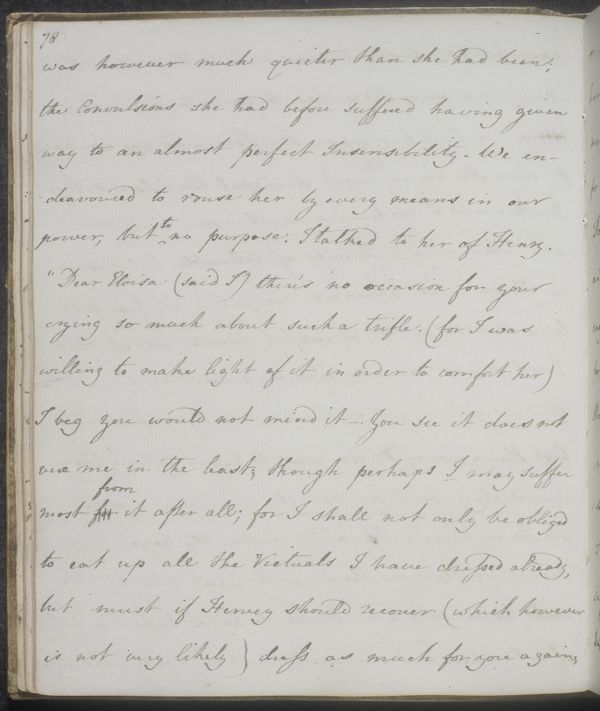 78
was however much quieter than she had been;
the Convulsions she had before suffered having given
way to an almost perfect Insensibility. We en-
-deavoured to rouse her by every means in our
power, but to no purpose. I talked to her of Henry.
"Dear Eloisa (said I) there's no occasion for your
crying so much about such a trifle. (for I was
willing to make light of it in order to comfort her)
I beg you would not mind it -. You see it does not
vex me in the least; though perhaps I may suffer
most from it after all; for I shall not only be obliged
to eat up all the Victuals I have dressed already,
but must if Hervey should recover (which however
is not very likely) dress as much for you again;